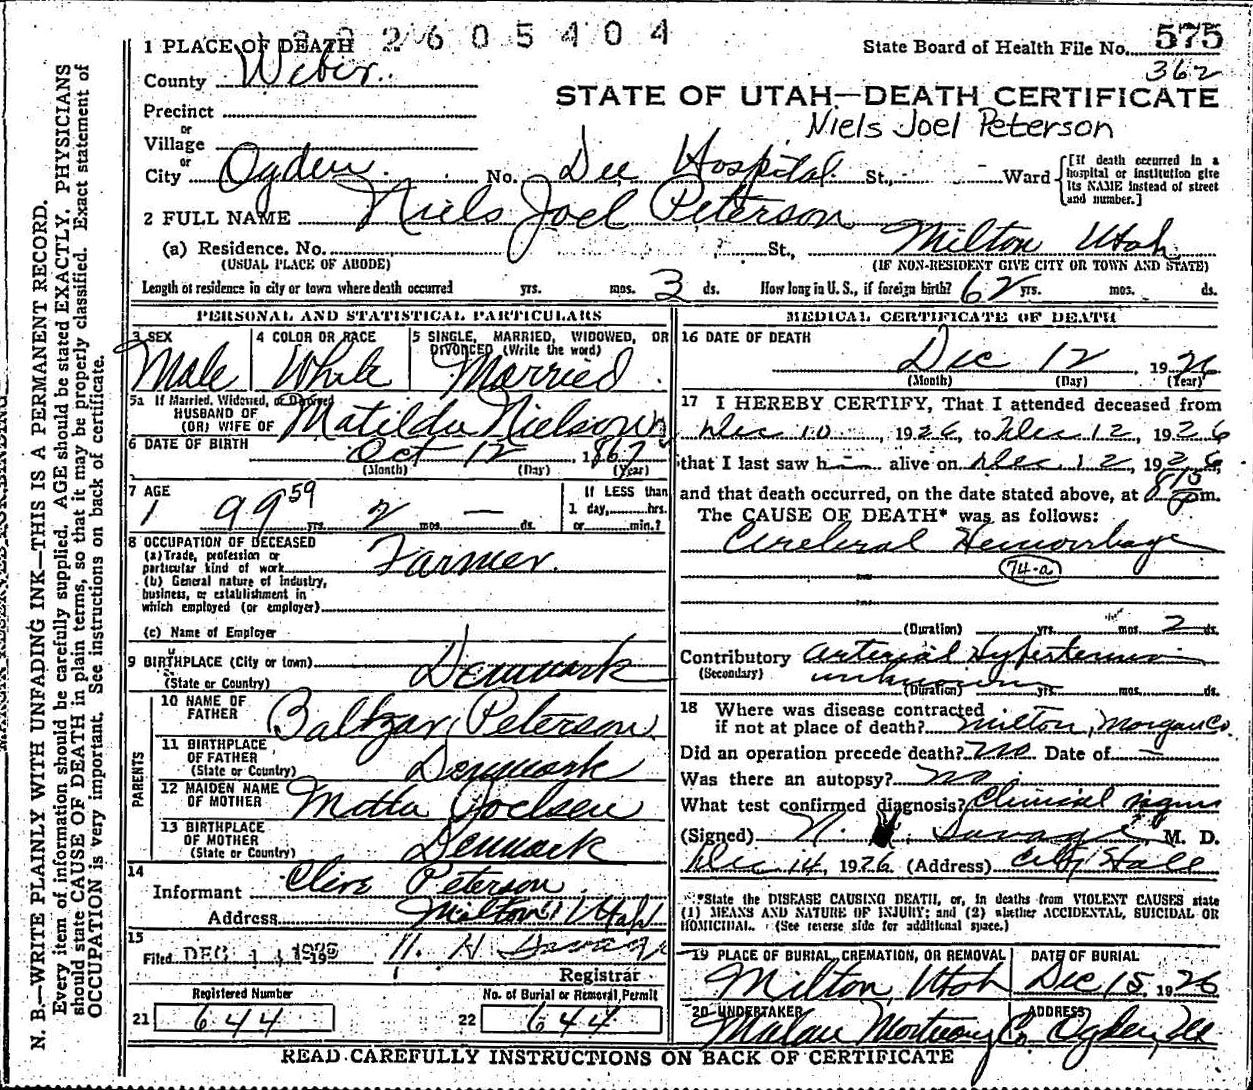 2 6 0 5 4 0 4
State Board of Health File No. 575
362
1 PLACE OF DEATH
County Weber
STATE OF UTAH—DEATH CERTIFICATE
Precinct
Niels Joel Peterson
or
Village
or
City Ogden No. Dee Hospital St., Ward
[If death occurred in a hospital or institution give its NAME instead of street and number.]
2 FULL NAME Niels Joel Peterson
(a) Residence. No. St., Milton Utah
(USUAL PLACE OF ABODE) (IF NON-RESIDENT GIVE CITY OR TOWN AND STATE)
Length of residence in city or town where death occurred yrs. mos. 3 ds. How long in U. S., if foreign birth? 62 yrs. mos. ds.
PERSONAL AND STATISTICAL PARTICULARS
3 SEX 4 COLOR OR RACE 5 SINGLE, MARRIED, WIDOWED, OR
DIVORCED (Write the word)
Male White Married
5a If Married, Widowed, or Divorced
HUSBAND OF
(OR) WIFE OF Matilda Nielson
6 DATE OF BIRTH Oct 12 1867
(Month) (Day) (Year)
7 AGE If LESS than
59 yrs. 2 mos. — ds. 1 day, hrs.
or min.?
8 OCCUPATION OF DECEASED
(a) Trade, profession or
particular kind of work Farmer
(b) General nature of Industry,
business, or establishment in
which employed (or employer)
(c) Name of Employer
9 BIRTHPLACE (City or town)
(State or Country) Denmark
PARENTS
10 NAME OF
FATHER Baltzar Peterson
11 BIRTHPLACE
OF FATHER
(State or Country) Denmark
12 MAIDEN NAME
OF MOTHER Motta Joelsen
13 BIRTHPLACE
OF MOTHER
(State or Country) Denmark
14
Informant Clive Peterson
Address Milton Utah
15
Filed DEC 19 Savage
Registrar
Registered Number No. of Burial or Removal Permit
21 644 22 644
MEDICAL CERTIFICATE OF DEATH
16 DATE OF DEATH
Dec 12, 1926
(Month) (Day) (Year)
17 I HEREBY CERTIFY, That I attended deceased from
Dec 10, 1926, to Dec 12, 1926
that I last saw h alive on Dec 12, 1926
and that death occurred, on the date stated above, at m.
The CAUSE OF DEATH* was as follows:
Cerebral Hemorrhage
74-a
(Duration) yrs. mos. 2 ds.
Contributory Arterial Hypertension
(Secondary) unknown
(Duration) yrs. mos. ds.
18 Where was disease contracted
if not at place of death? Milton, Morgan Co.
Did an operation precede death? no Date of —
Was there an autopsy? no
What test confirmed diagnosis? Clinical signs
(Signed) Savage M. D.
Dec 14, 1926 (Address) City Hall
*State the DISEASE CAUSING DEATH, or, in deaths from VIOLENT CAUSES state
(1) MEANS AND NATURE OF INJURY; and (2) whether ACCIDENTAL, SUICIDAL OR
HOMICIDAL. (See reverse side for additional space.)
19 PLACE OF BURIAL, CREMATION, OR REMOVAL DATE OF BURIAL
Milton, Utah Dec 15, 1926
20 UNDERTAKER ADDRESS
Mortuary Co Ogden,
READ CAREFULLY INSTRUCTIONS ON BACK OF CERTIFICATE
N. B.—WRITE PLAINLY WITH UNFADING INK—THIS IS A PERMANENT RECORD.
Every item of information should be carefully supplied. AGE should be stated EXACTLY. PHYSICIANS
should state CAUSE OF DEATH in plain terms, so that it may be properly classified. Exact statement of
OCCUPATION is very important. See instructions on back of certificate.